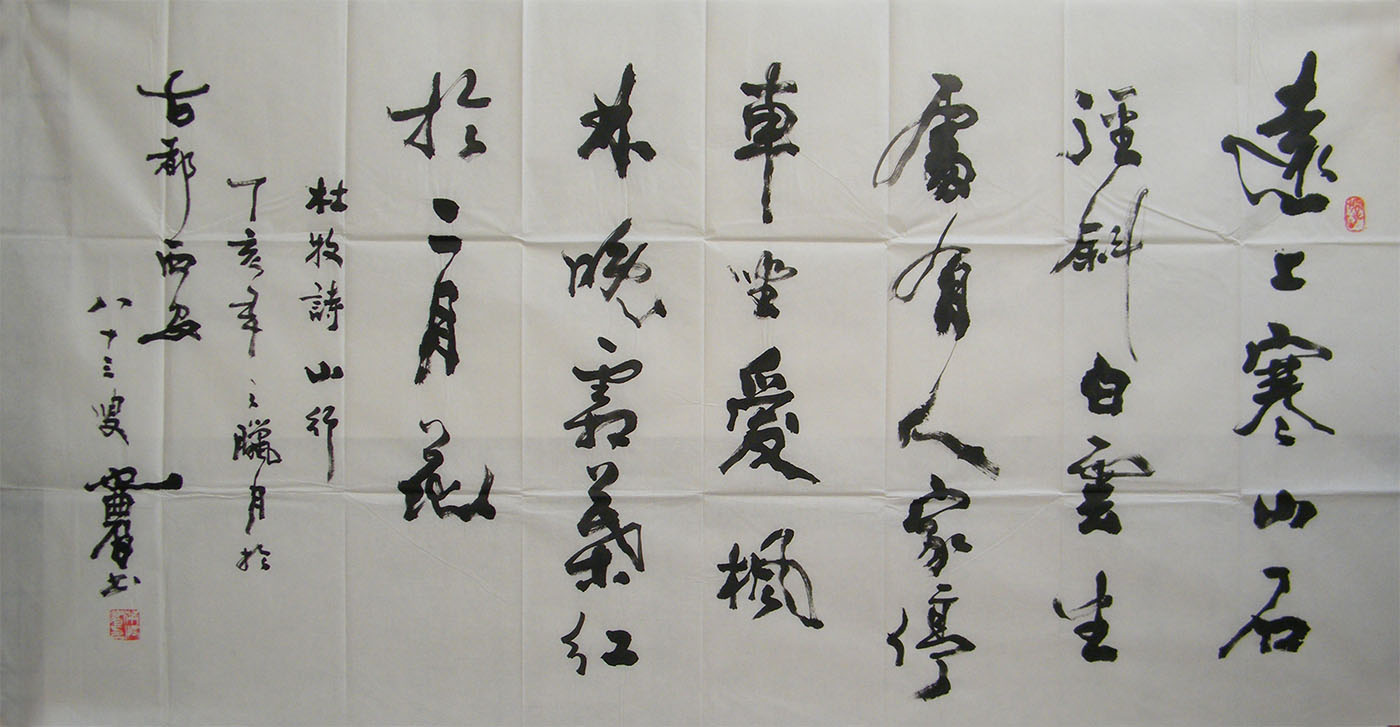 遠上寒山石
徑斜白雲生
處有人家停
車坐愛楓
林晚霜葉红
於二月花
杜牧詩山行
丁亥年之臘月於
古都西安
八十三叟書